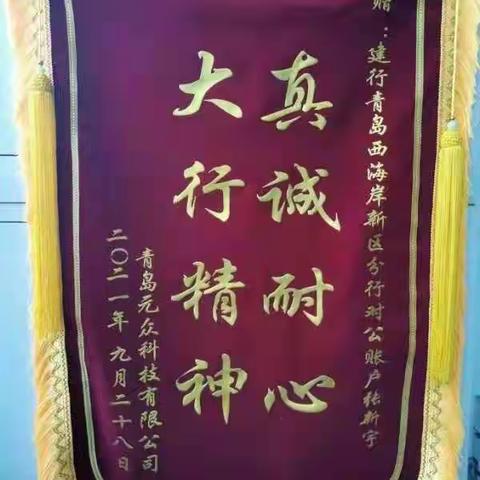 赠：建行青岛西海岸新区分行对公账户张新宇
真诚耐心
大行精神
青岛元众科技有限公司
二〇二一年九月二十八日